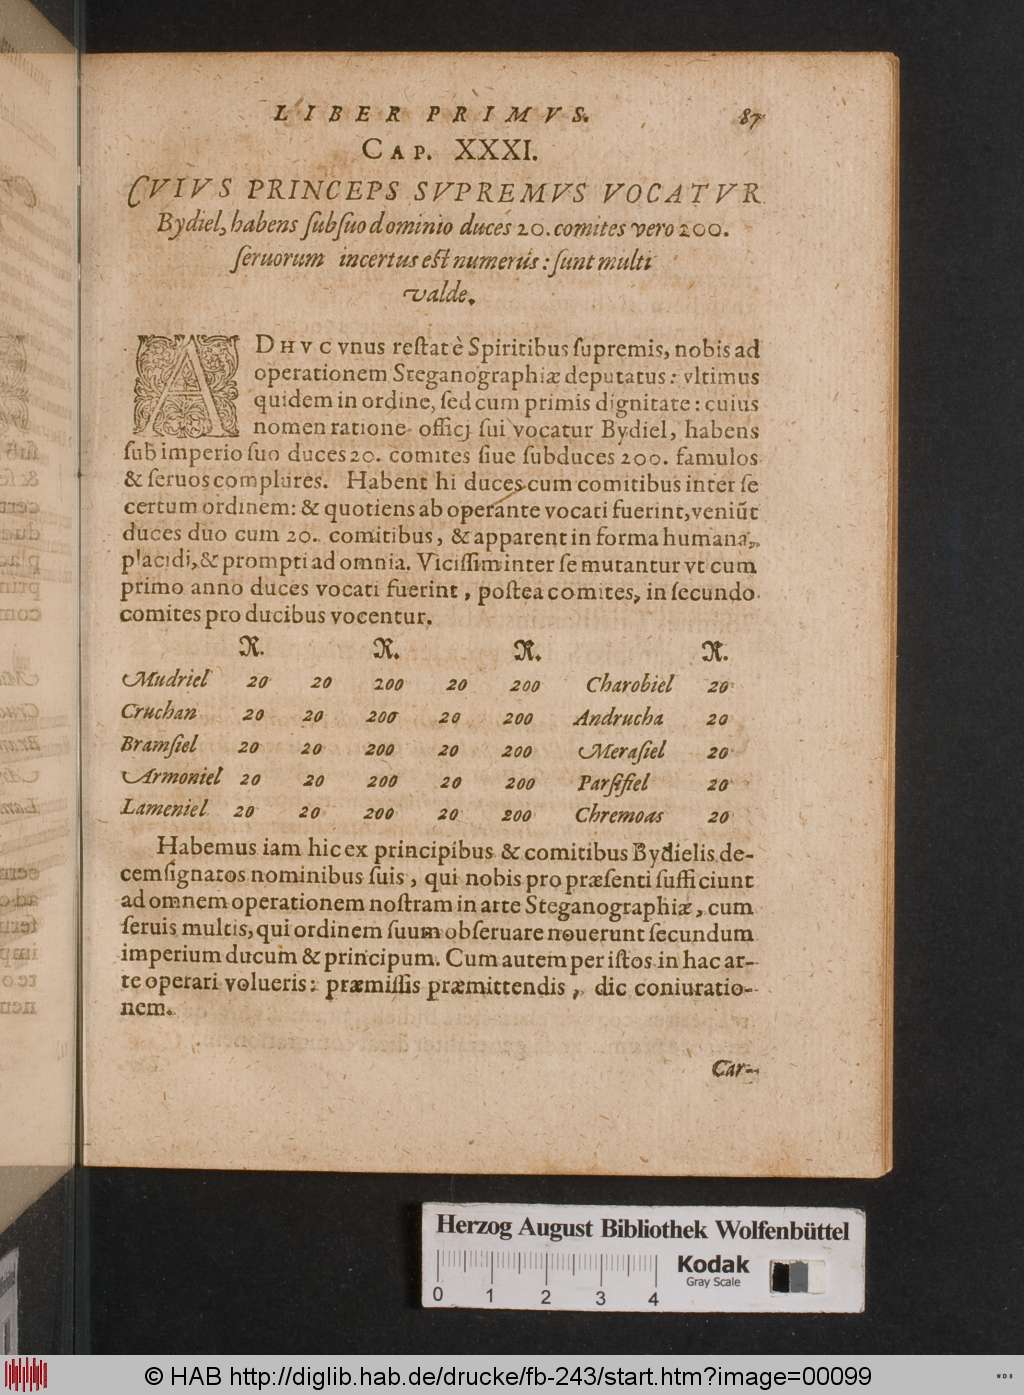 LIBER PRIMVS. 87
CAP. XXXI.
CVIVS PRINCEPS SVPREMVS VOCATVR
Bydiel, habens ſub ſuo dominio duces 20. comites vero 200.
ſeruorum incertus eſt numerus: ſunt multi
valde.
ADHVC vnus reſtat è Spiritibus ſupremis, nobis ad
operationem Steganographiæ deputatus: vltimus
quidem in ordine, ſed cum primis dignitate: cuius
nomen ratione officj ſui vocatur Bydiel, habens
ſub imperio ſuo duces 20. comites ſiue ſubduces 200. famulos
& ſeruos complures. Habent hi duces cum comitibus inter ſe
certum ordinem: & quotiens ab operante vocati fuerint, veniũt
duces duo cum 20. comitibus, & apparent in forma humana,
placidi, & prompti ad omnia. Viciſſim inter ſe mutantur vt cum
primo anno duces vocati fuerint, poſtea comites, in ſecundo
comites pro ducibus vocentur.
R. R. R. R.
Mudriel 20 20 200 20 200 Charobiel 20
Cruchan 20 20 200 20 200 Andrucha 20
Bramſiel 20 20 200 20 200 Meraſiel 20
Armoniel 20 20 200 20 200 Parſifiel 20
Lameniel 20 20 200 20 200 Chremoas 20
Habemus iam hic ex principibus & comitibus Bydielis de-
cem ſignatos nominibus ſuis, qui nobis pro præſenti ſufficiunt
ad omnem operationem noſtram in arte Steganographiæ, cum
ſeruis multis, qui ordinem ſuum obſeruare nouerunt ſecundum
imperium ducum & principum. Cum autem per iſtos in hac ar-
te operari volueris: præmiſſis præmittendis, dic coniuratio-
nem.
Car-
Herzog August Bibliothek Wolfenbüttel
Kodak
Gray Scale
0 1 2 3 4
© HAB http://diglib.hab.de/drucke/fb-243/start.htm?image=00099